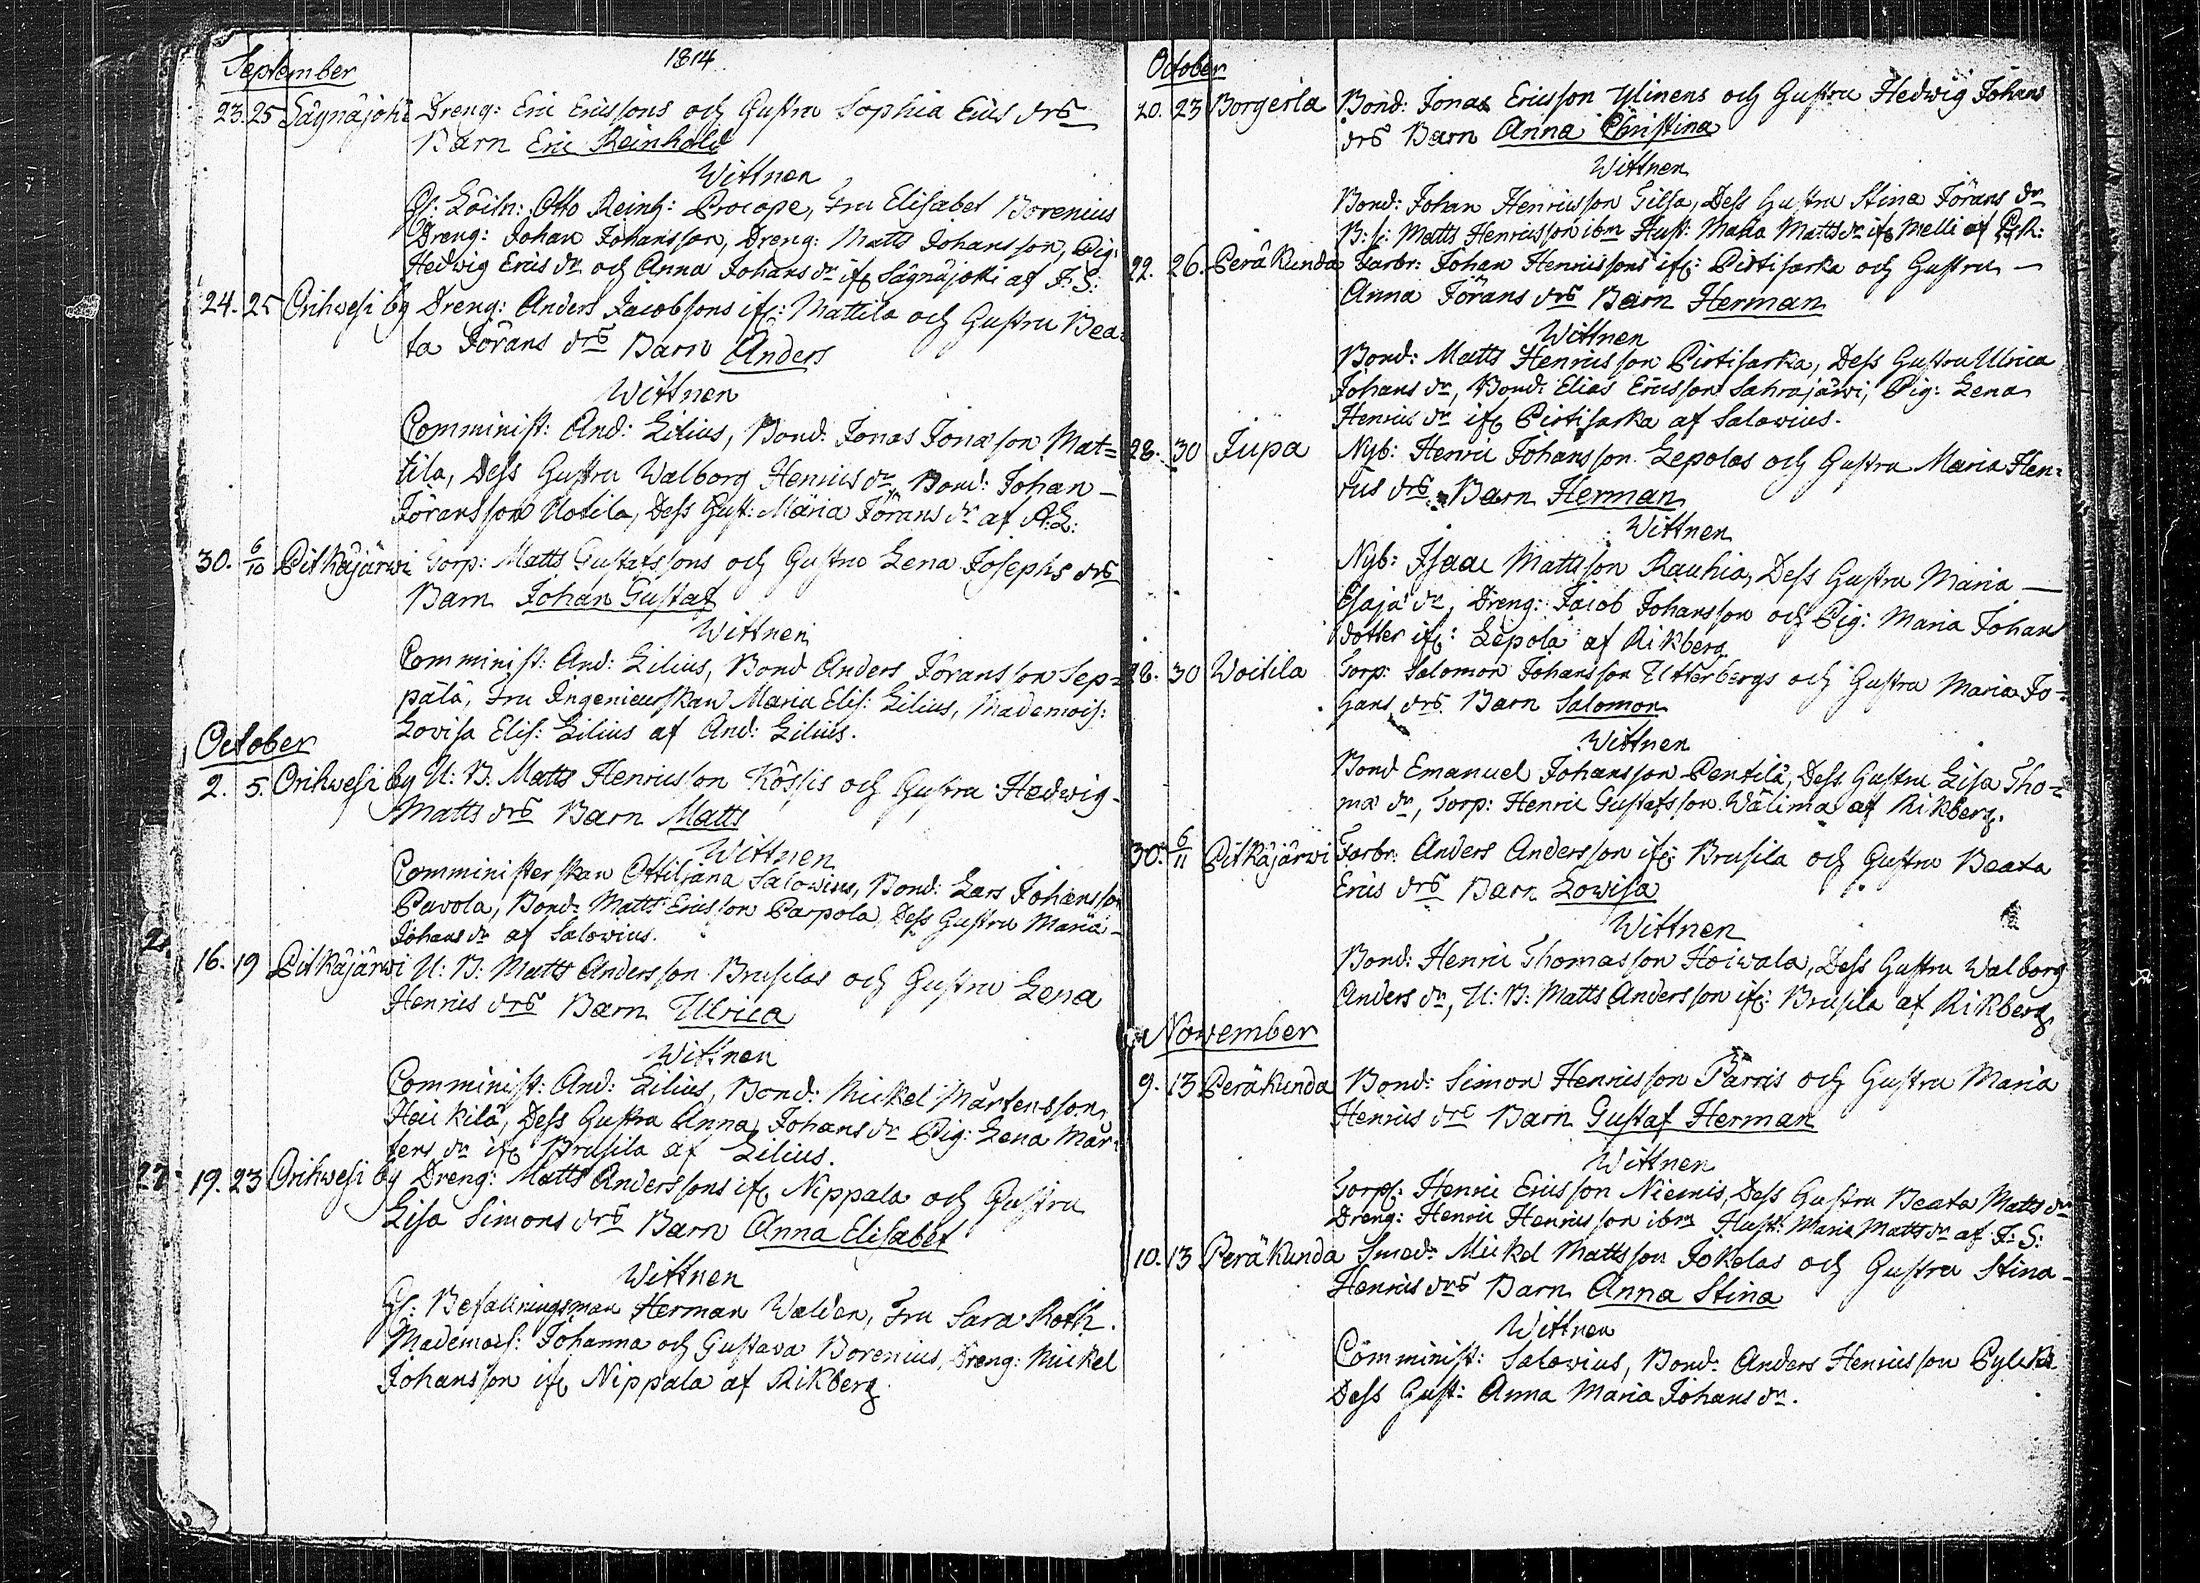 1814
September
23. 25 Sägnäjoki Dreng: Eric Ericssons och Hustru Sophia Erics drs
Barn Eric Reinhold
Wittnen
H: Löitn: Otto Reinh: Procope, Fru Elisabet Borenius
Dreng: Johan Johansson, Dreng: Matts Johansson, Pig:
Hedwig Erics dr och Anna Johans dr ifr Sägnäjoki af F. S:
24. 25 Orihwesi by Dreng: Anders Jacobssons ifr: Mattila och Hustru Bea-
ta Jörans drs Barn Anders
Wittnen
Comminist: And: Lilius, Bond: Jonas Jonasson Mat=
tila, Dess Hustru Walborg Henrics dr, Bond: Johan –
Jöransson Uotila, Dess Hust: Maria Jörans dr af A: L:
30. 6/10 Pitkäjärwi Torp: Matts Gustafssons och Hustru Lena Josephs drs
Barn Johan Gustaf
Wittnen
Comminist: And: Lilius, Bond Anders Jöransson Sep=
pälä, Fru Ingenieurskan Maria Elis: Lilius, Mademois:
Lovisa Elis: Lilius af And: Lilius.
October
2. 5. Orihwesi by U: B. Matts Henricsson Kössis och Hustru Hedwig
Matts drs Barn Matts
Wittnen
Comministerskan Ottiliana Salovius, Bond: Lars Johansson
Pavola, Bond: Matts Ericsson Parpola, Dess Hustru Maria –
Johans dr af Salovius.
16. 19 Pitkäjärwi U: B: Matts Andersson Brusilas och Hustru Lena
Henrics drs Barn Ulrica
Wittnen
Comminist: And: Lilius, Bond: Mickel Mårtensson
Heikkilä, Dess Hustru Anna Johans dr Pig: Lena Mår-
tens dr ifr Brusila af Lilius.
19. 23 Orihwesi by Dreng: Matts Anderssons ifr Nippala och Hustru
Lisa Simons drs Barn Anna Elisabet
Wittnen
H: Befallningsman Herman Walden, Fru Sara Roth.
Mademois: Johanna och Gustava Borenius, Dreng: Mickel
Johansson ifr Nippala af Rikberg.
October
20. 23 Borgerla Bond: Jonas Ericsson Ylinens och Hustru Hedwig Johans
drs Barn Anna Christina
Wittnen
Bond: Johan Henricsson Tilsa, Dess Hustru Stina Jörans dr
B: s: Matts Henricsson ibm Hust: Maria Matts dr ifr Melli af
22. 26. Peräkunda Farbr: Johan Henricssons ifr: Pirtisarka och Hustru –
Anna Jörans drs Barn Herman
Wittnen
Bond: Matts Henricsson Pirtisarka, Dess Hustru Ulrica
Johans dr, Bond: Elias Ericsson Sahrajärwi, Pig: Lena
Henrics dr ifr Pirtisarka af Salovius.
28. 30 Jupa Nyb: Henric Johansson Lepolas och Hustru Maria Hen=
rics drs Barn Herman
Wittnen
Nyb: Isaac Mattsson Rauhia, Dess Hustru Maria –
Esajæ dr, Dreng: Jacob Johansson och Pig: Maria Johans
dotter ifr: Lepola af Rikberg
28. 30 Woitila Torp: Salomon Johansson Utterbergs och Hustru Maria Jo=
hans drs Barn Salomon
Wittnen
Bond Emanuel Johansson Pentilä, Dess Hustru Lisa Tho=
mæ dr, Torp: Henric Gustafsson Wälimä af Rikberg.
30. 6/11 Pitkäjärwi Farbr: Anders Andersson ifr: Brusila och Hustru Beata
Erics drs Barn Lowisa
Wittnen
Bond: Henric Thomasson Hoiwala, Dess Hustru Walborg
Anders dr, U: B: Matts Andersson ifr: Brusila af Rikberg.
November
9. 13 Peräkunda Bond: Simon Henricsson Pärris och Hustru Maria
Henrics drs Barn Gustaf Herman
Wittnen
Torp: Henric Ericsson Niemis, Dess Hustru Beata Matts dr
Dreng: Henric Henricsson ibm Hust: Maria Matts dr af F: S:
10. 13 Peräkunda Smed: Mickel Mattsson Jokelas och Hustru Stina –
Henrics drs Barn Anna Stina
Wittnen
Comminist: Salovius, Bond: Anders Henricsson
Dess Hust: Anna Maria Johans dr.